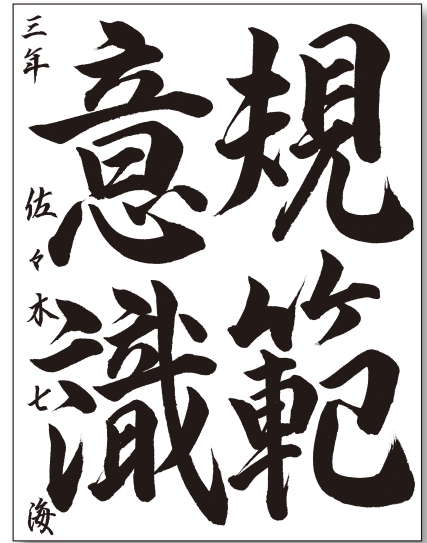 規範
意識
三年 佐々木七海